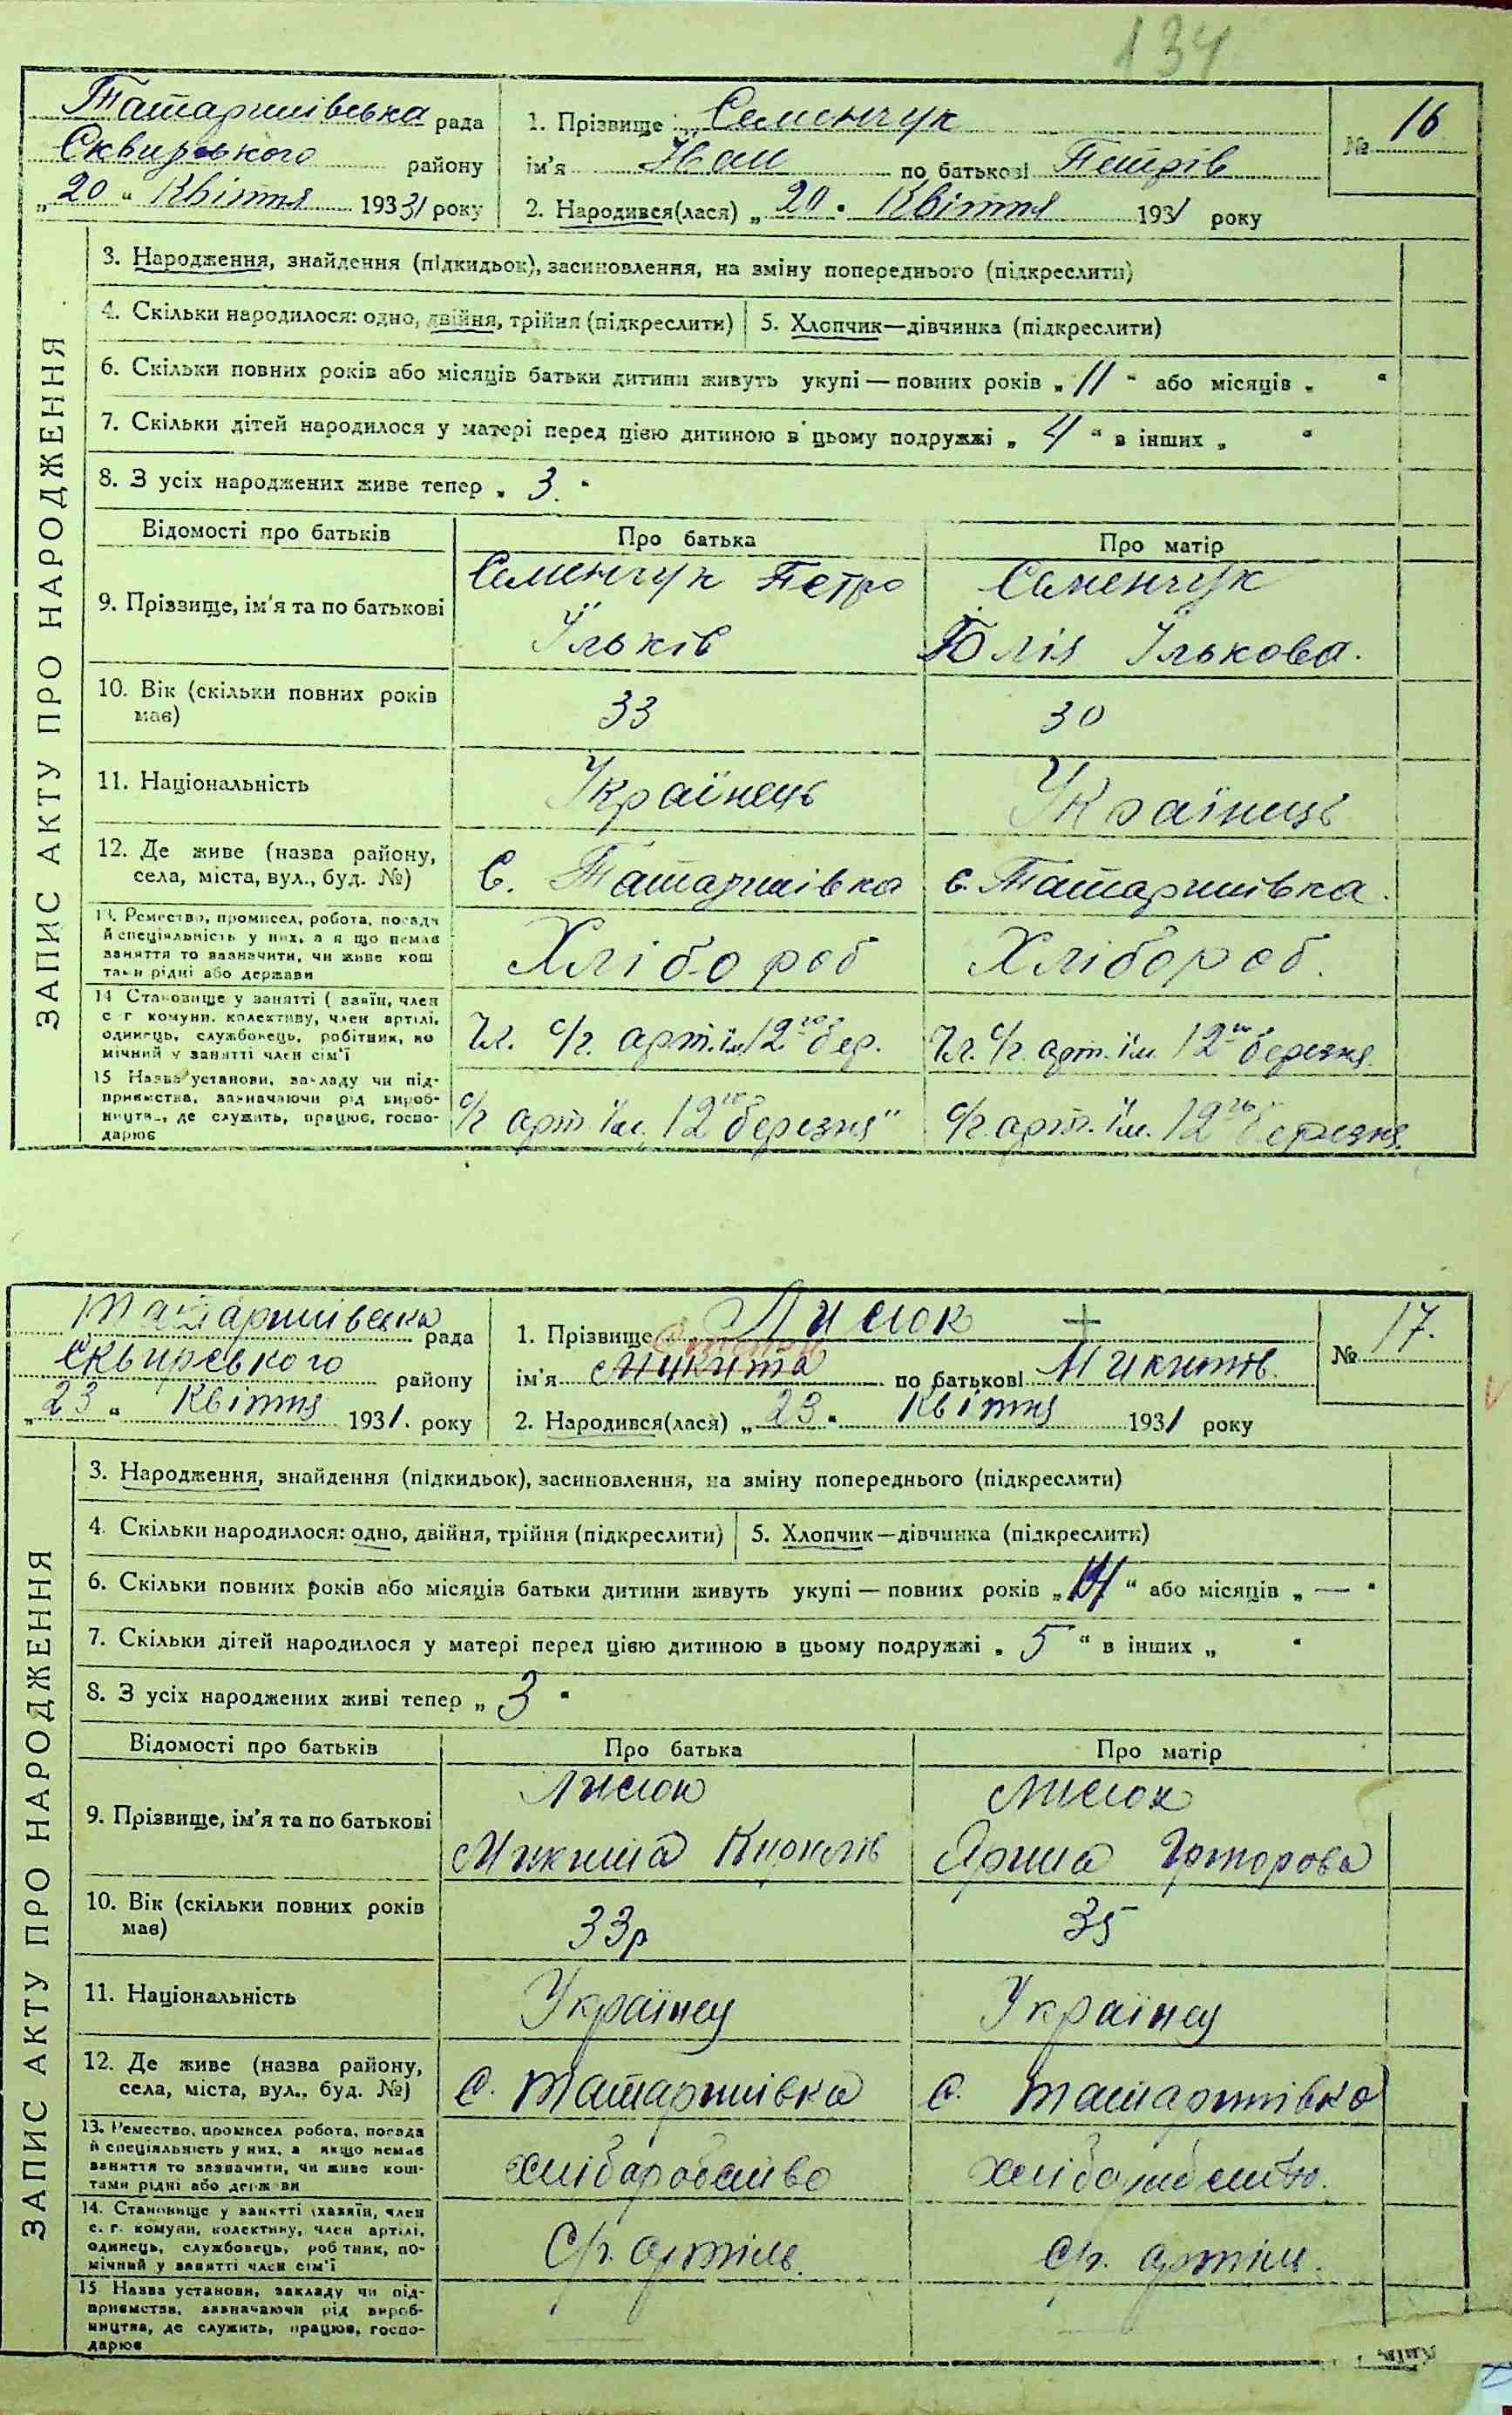 134
Татаршівська рада
Сквирського району
„20“ Квітня 1931 року
1. Прізвище Семенчук
ім'я Іван по батькові Петрів
2. Народився(лася) „20“ Квітня 1931 року
№ 16
ЗАПИС АКТУ ПРО НАРОДЖЕННЯ
3. Народження, знайдення (підкидьок), засиновлення, на зміну попереднього (підкреслити)
4. Скільки народилося: одно, двійня, трійня (підкреслити) 5. Хлопчик—дівчинка (підкреслити)
6. Скільки повних років або місяців батьки дитини живуть укупі — повних років „11“ або місяців „ “
7. Скільки дітей народилося у матері перед цією дитиною в цьому подружжі „4“ в інших „ “
8. З усіх народжених живе тепер „3“
Відомості про батьків Про батька Про матір
9. Прізвище, ім'я та по батькові
Семенчук Петро Ільків
Семенчук Юлія Ількова.
10. Вік (скільки повних років має) 33 30
11. Національність Українець Українець
12. Де живе (назва району, села, міста, вул., буд. №) С. Татаршівка с. Татаршівка.
13. Ремество, промисел, робота, посада й спеціяльність у них, а я що немає заняття то зазначити, чи живе кош тами рідні або держави
Хлібороб Хлібороб.
14 Становище у занятті ( азяїн, член с г комуни, колективу, член артілі, одинець, службовець, робітник, по мічний у занятті член сім'ї
Чл. с/г. арт. їм. 12го бер. Чл. с/г. арт. їм. 12го березня
15 Назва установи, закладу чи підприємства, зазначаючи рід виробництва, де служить, працює, господарює
с/г арт. їм. 12го березня" с/г. арт. їм. 12го березня
Татаршівська рада
Сквирського району
„23“ Квітня 1931. року
1. Прізвище Лисюк
ім'я Микита по батькові Микитів.
2. Народився(лася) „23“ Квітня 1931 року
№ 17.
ЗАПИС АКТУ ПРО НАРОДЖЕННЯ
3. Народження, знайдення (підкидьок), засиновлення, на зміну попереднього (підкреслити)
4. Скільки народилося: одно, двійня, трійня (підкреслити) 5. Хлопчик—дівчинка (підкреслити)
6. Скільки повних років або місяців батьки дитини живуть укупі — повних років „ “ або місяців „—“
7. Скільки дітей народилося у матері перед цією дитиною в цьому подружжі „5“ в інших „ “
8. З усіх народжених живі тепер „3“
Відомості про батьків Про батька Про матір
9. Прізвище, ім'я та по батькові
Лисюк Микита
Лисюк Ярина
10. Вік (скільки повних років має) 33р 35
11. Національність Українец Українец
12. Де живе (назва району, села, міста, вул., буд. №) с. Татаршівка с. Татаршівка
13. Ремество, промисел робота, посада й спеціяльність у них, а якщо немає заняття то зазначити, чи живе коштами рідні або держ ви
хлібаробство хліборобство.
14. Становище у занятті (хазяїн, член с. г. комуни, колективу, член артілі, одинець, службовець, роб тник, помічний у занятті член сім'ї
С/г. артіль. С/г. артіль.
15 Назва установи, закладу чи підприємства, зазначаючи рід виробництва, де служить, працює, господарює